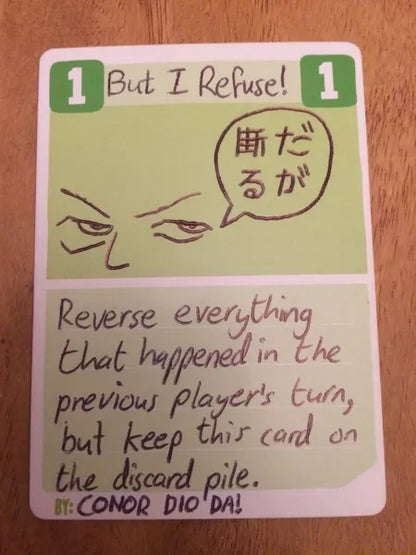 1 But I Refuse! 1
だが
断る
Reverse everything
that happened in the
previous player's turn,
but keep this card on
the discard pile.
BY: CONOR DIO DA!